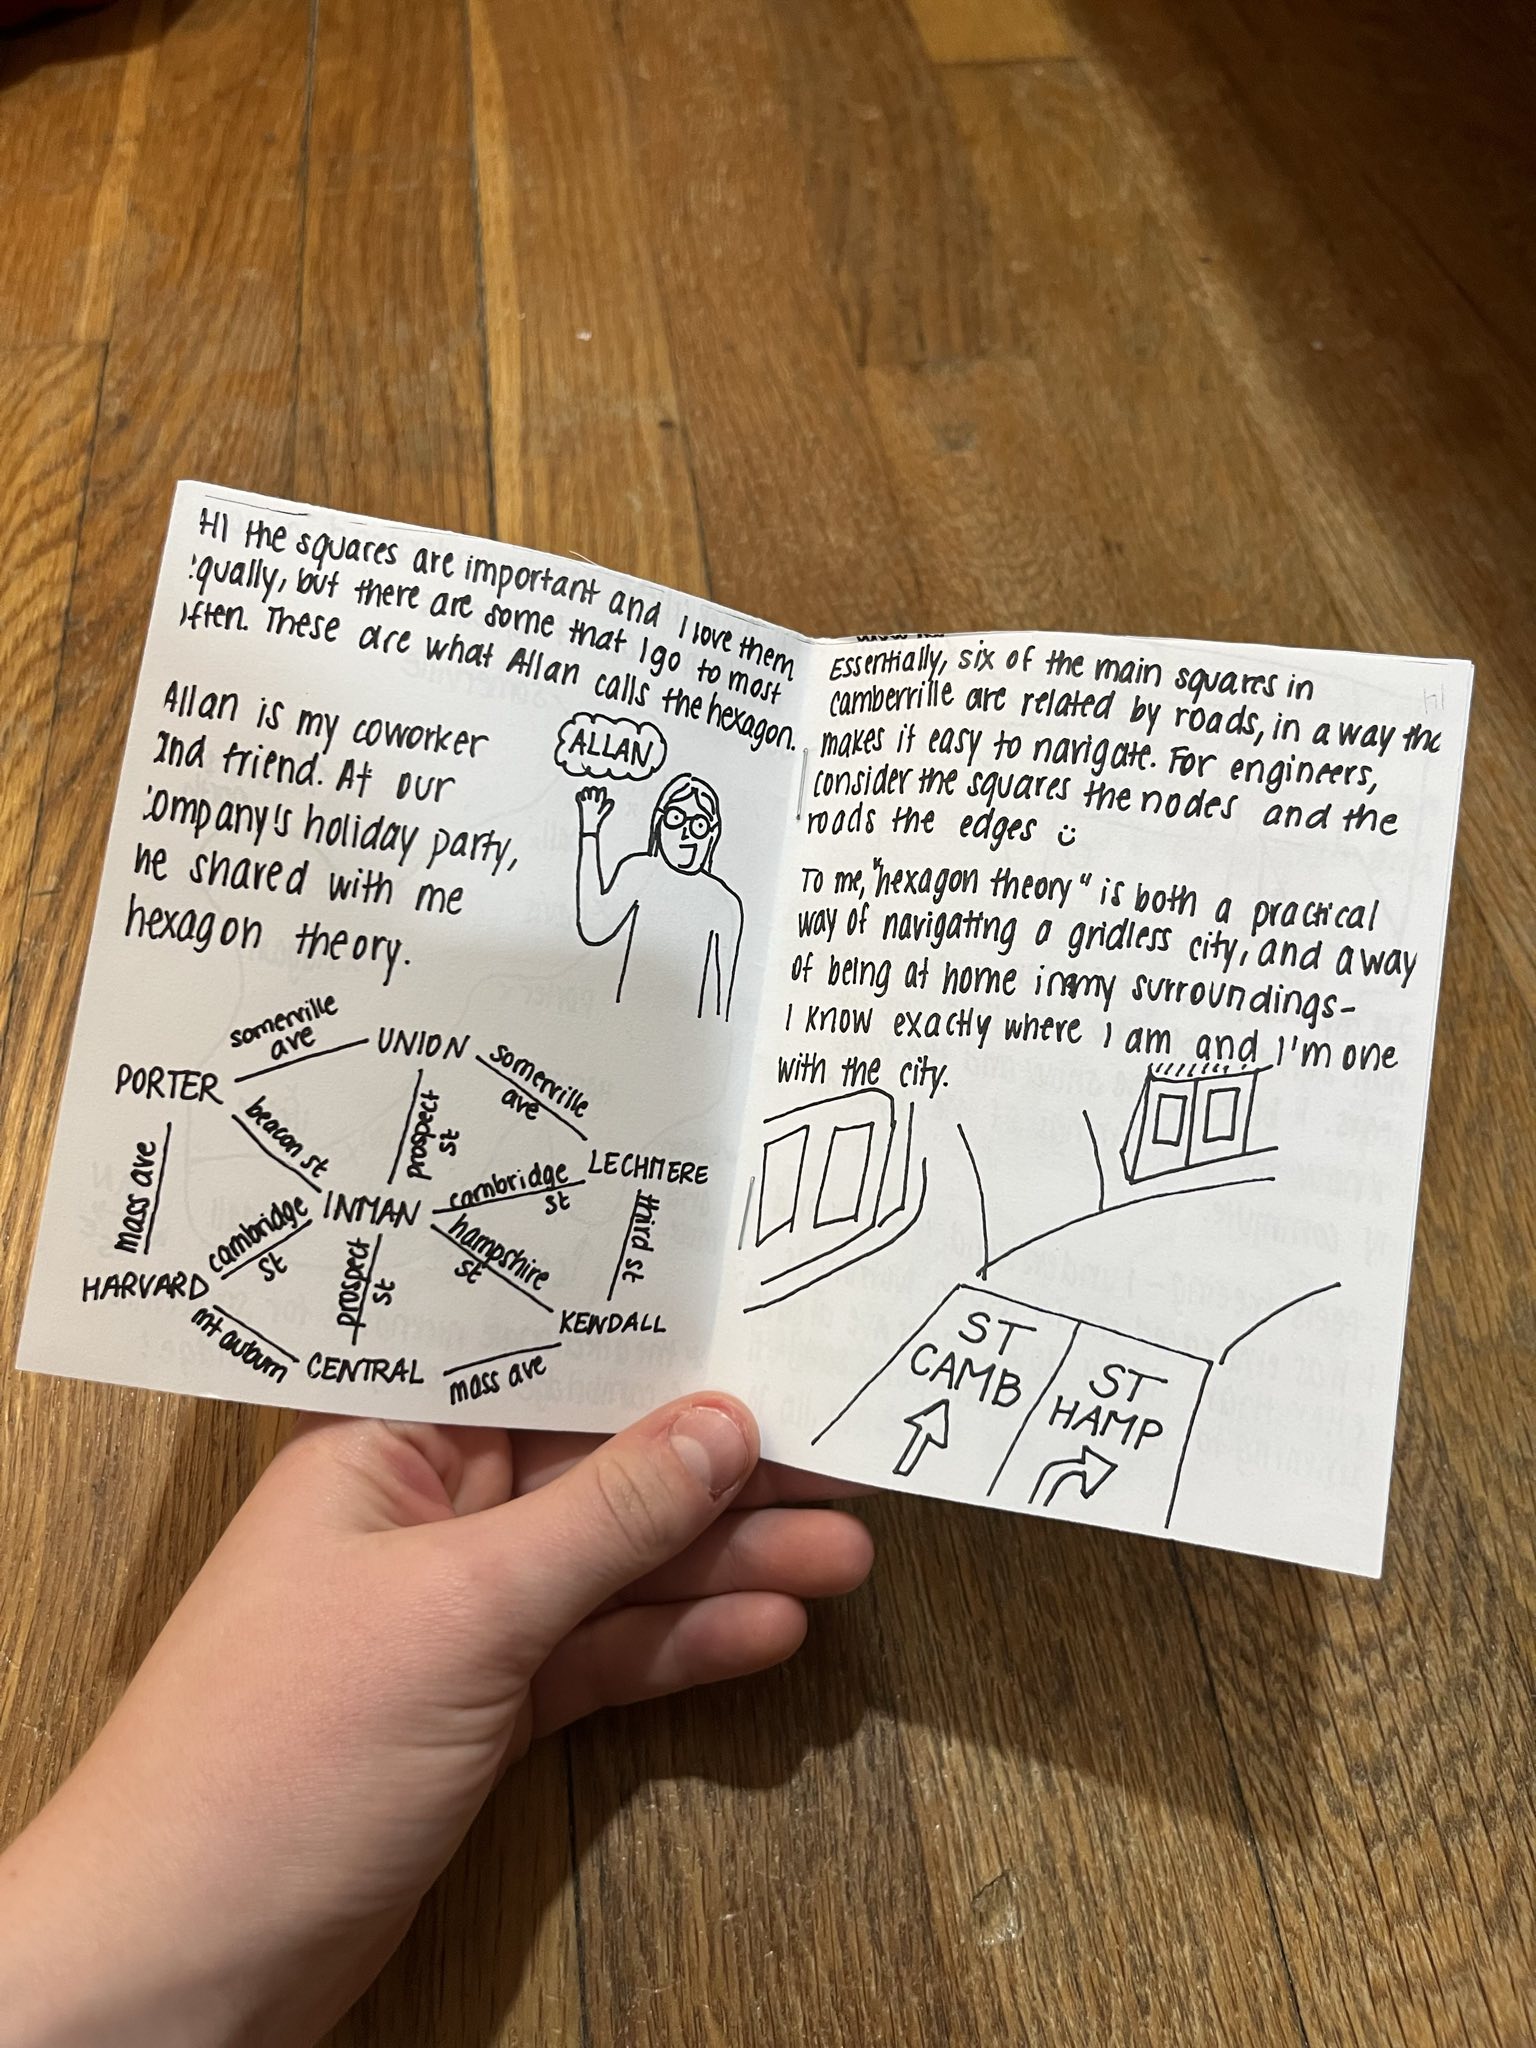 All the squares are important and I love them
equally, but there are some that I go to most
often. These are what Allan calls the hexagon.
Allan is my coworker
and friend. At our
company's holiday party,
he shared with me
hexagon theory.
ALLAN
somerville
ave
UNION
somerville
ave
PORTER
beacon st
prospect
st
LECHMERE
mass ave
cambridge
st
INMAN
cambridge
st
hampshire
st
third st
HARVARD
prospect
st
KENDALL
mt auburn
CENTRAL
mass ave
Essentially, six of the main squares in
camberville are related by roads, in a way tha
makes it easy to navigate. For engineers,
consider the squares the nodes and the
roads the edges :)
To me, "hexagon theory" is both a practical
way of navigating a gridless city, and a way
of being at home in my surroundings-
I know exactly where I am and I'm one
with the city.
ST
CAMB
ST
HAMP